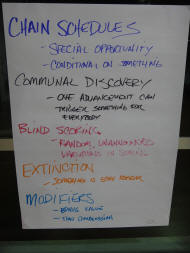 CHAIN SCHEDULES
- SPECIAL OPPORTUNITY
- CONDITIONAL ON SOMETHING
COMMUNAL DISCOVERY
- ONE ADVANCEMENT CAN
TRIGGER SOMETHING FOR
EVERYBODY
BLIND SCORING
- RANDOM, UNANNOUNCED
VARIATIONS IN SCORING
EXTINCTION
- SOMETHING IS GONE FOREVER
MODIFIERS
- BONUS VALUE
- THEN